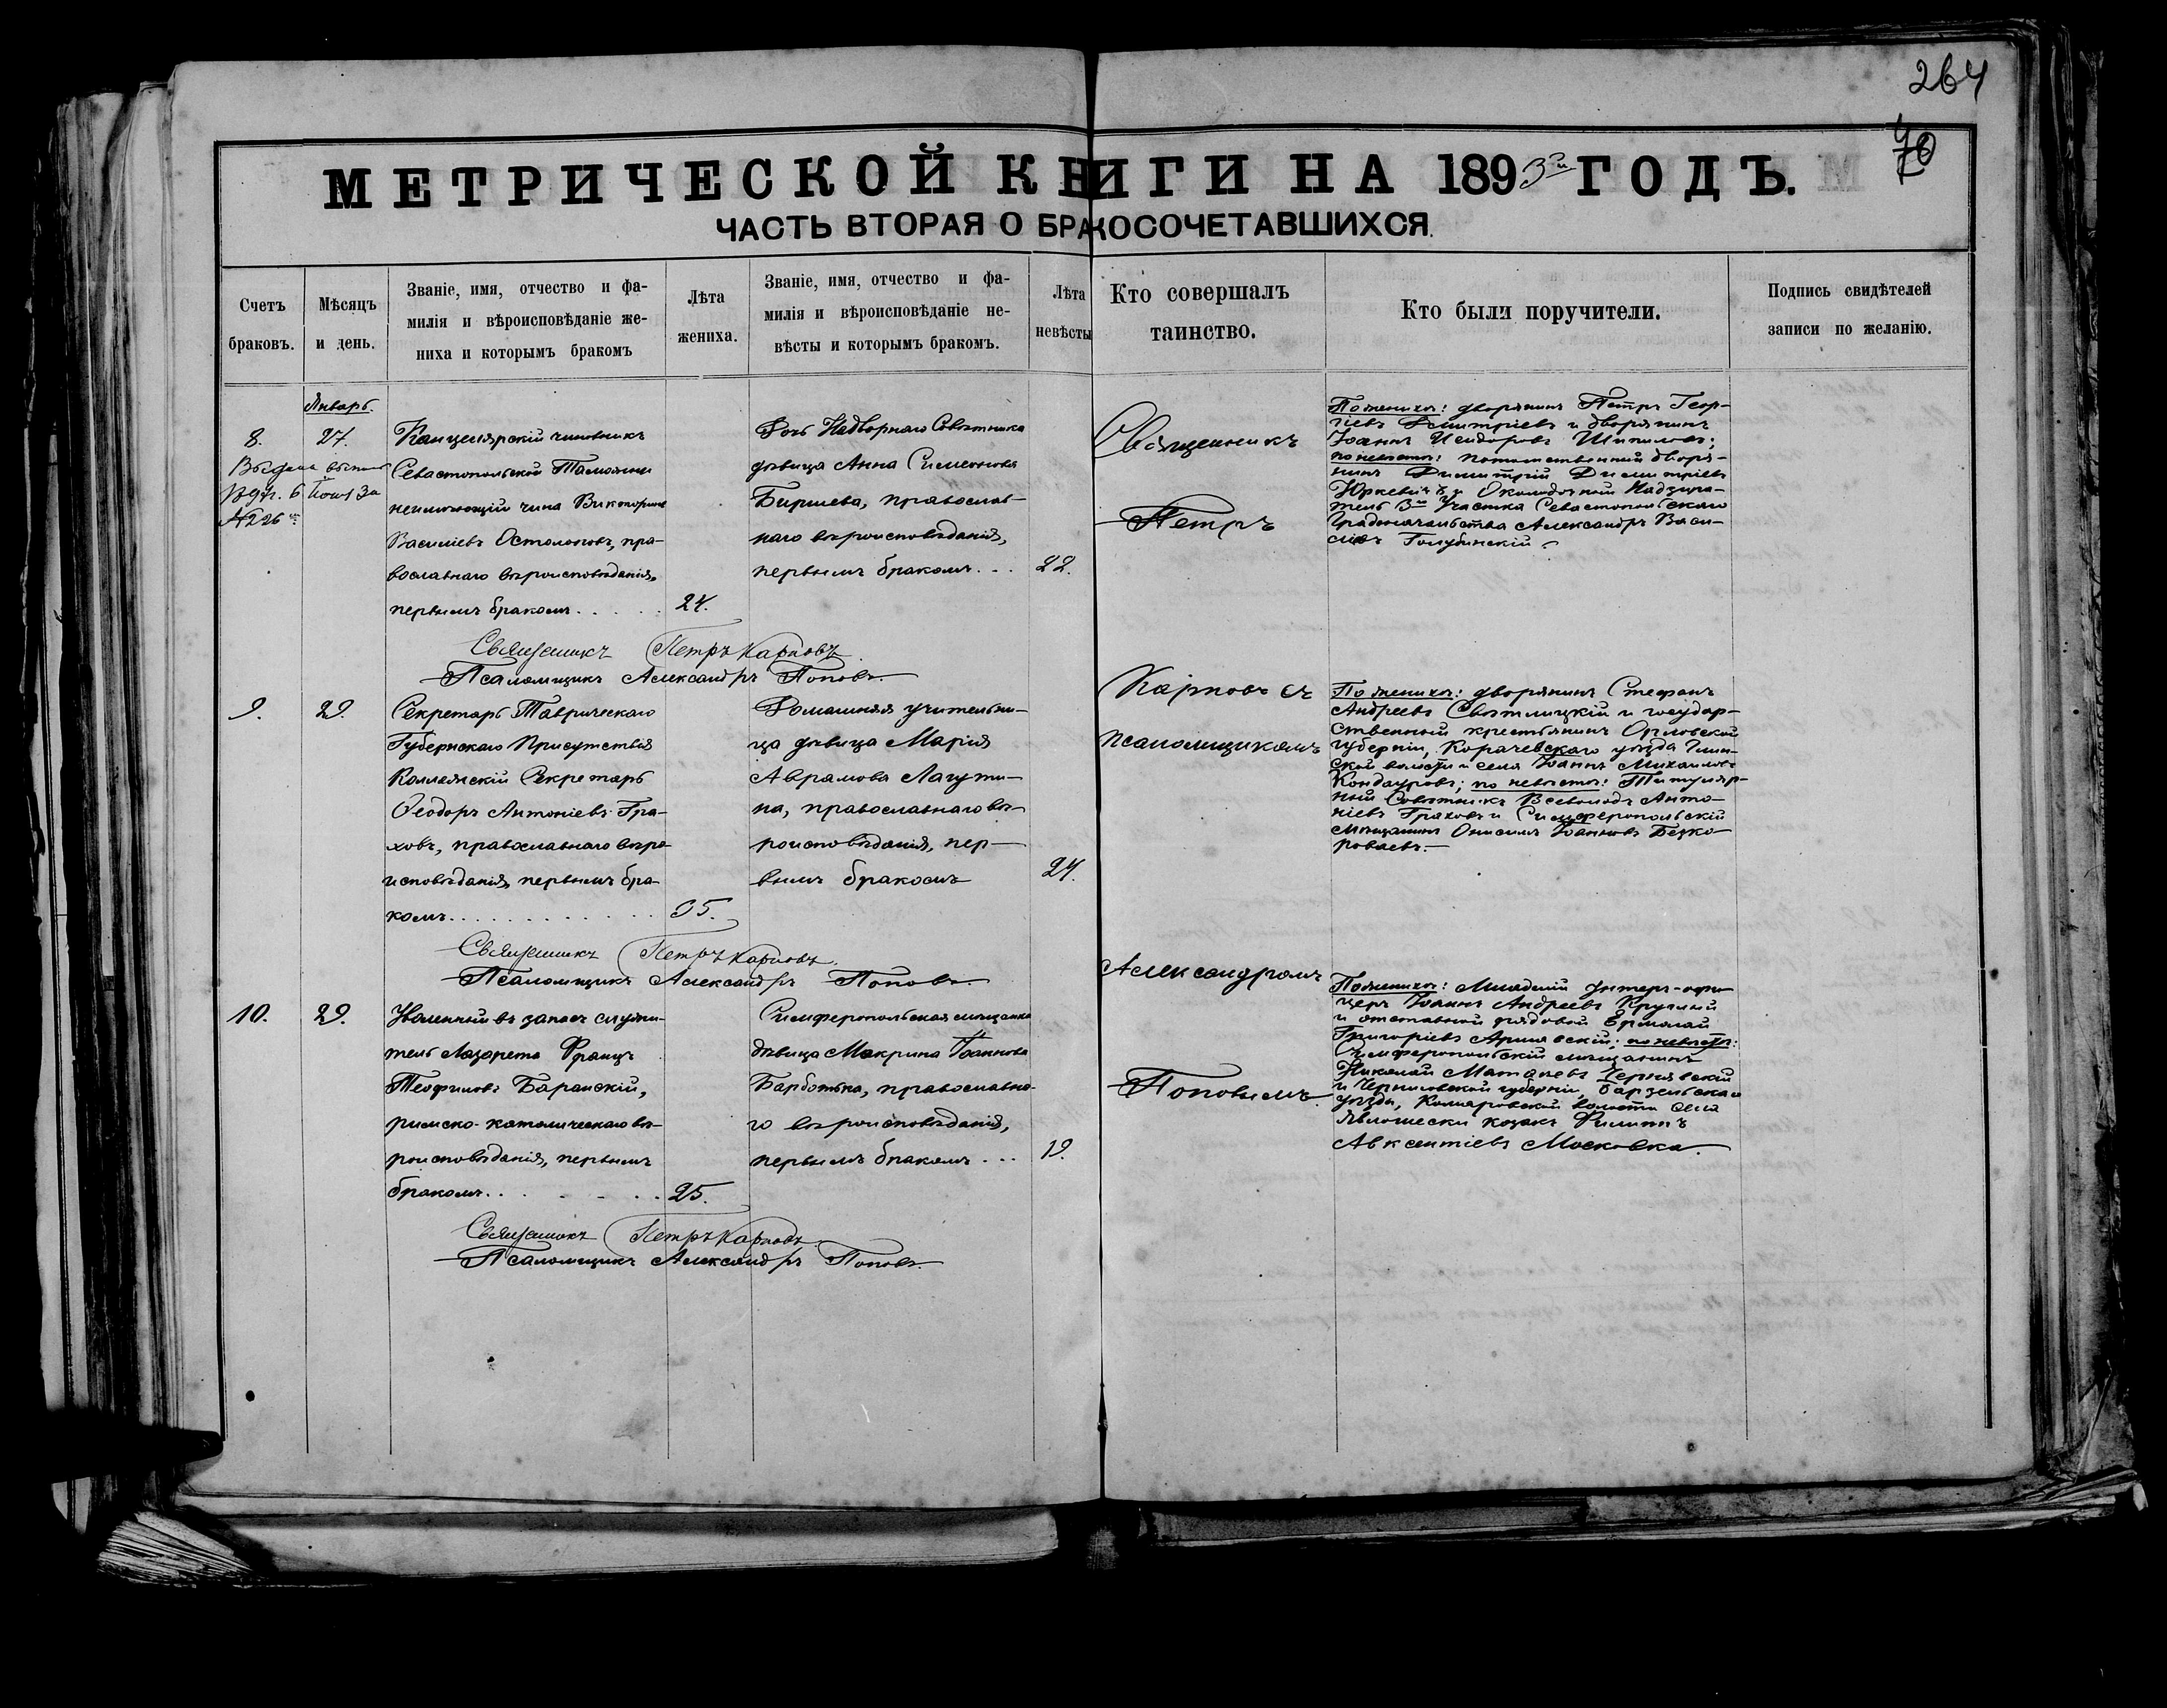 264
70
МЕТРИЧЕСКОЙ КНИГИ НА 1893й ГОДЪ.
ЧАСТЬ ВТОРАЯ О БРАКОСОЧЕТАВШИХСЯ.
Счетъ
браковъ.
Мѣсяцъ
и день.
Званіе, имя, отчество и фа-
милія и вѣроисповѣданіе же-
ниха и которымъ бракомъ
Лѣта
жениха.
Званіе, имя, отчество и фа-
милія и вѣроисповѣданіе не-
вѣсты и которымъ бракомъ.
Лѣта
невѣсты
Кто совершалъ
таинство.
Кто были поручители.
Подпись свидѣтелей
записи по желанію.
Январь.
8.
27.
Выдана
№226
Канцелярскій чиновникъ
Севастопольской Таможни
неимѣющій чина Викторинъ
Василіевъ Остолоповъ, пра-
вославнаго вѣроисповѣданія,
первымъ бракомъ.....
24.
Дочь Надворнаго Совѣтника
дѣвица Анна Симеонова
Бирилева, православ-
наго вѣроисповѣданія,
первымъ бракомъ...
22.
Священникъ
Петръ
Карповъ съ
псаломщикомъ
Александромъ
Поповымъ.
По женихѣ: дворянинъ Петръ Геор-
гіевъ Дмитріевъ и дворянинъ
Іоаннъ Исидоровъ Шипиловъ;
по невѣстѣ: потомственный дворя-
нинъ Димитрій Димитріевъ
Юркевичъ и Околодочный Надзира-
тель 3го Участка Севастопольскаго
Градоначальства Александръ Васи-
ліевъ Голубинскій.
Священникъ Петръ Карповъ
Псаломщикъ Александръ Поповъ.
9.
29.
Секретарь Таврическаго
Губернскаго Присутствія
Коллежскій Секретарь
Ѳеодоръ Антоніевъ Гра-
ховъ, православнаго вѣро-
исповѣданія, первымъ бра-
комъ.............
35.
Домашняя учительни-
ца дѣвица Марія
Аврамова Лагути-
на, православнаго вѣ-
роисповѣданія, пер-
вымъ бракомъ
24.
По женихѣ: дворянинъ Стефанъ
Андреевъ Свѣтлицкій и государ-
ственный крестьянинъ Орловской
губерніи, Карачевскаго уѣзда
ской волости и села Іоаннъ Михаиловъ
Кондауровъ; по невѣстѣ: Титуляр-
ный Совѣтникъ Всеволодъ Анто-
ніевъ Граховъ и Симферопольскій
мѣщанинъ Онисимъ Іоанновъ Безко-
роваевъ.
Священникъ Петръ Карповъ.
Псаломщикъ Александръ Поповъ.
10.
29.
Уволенный въ запасъ служи-
тель Лазарета Францъ
Теофиловъ Баранскій,
римско-католическаго вѣ-
роисповѣданія, первымъ
бракомъ......
25.
Симферопольская мѣщанка
дѣвица Макрина Іоаннова
Барботька, православна-
го вѣроисповѣданія,
первымъ бракомъ...
19.
По женихѣ: Младшій унтеръ-офи-
церъ Іоаннъ Андреевъ Круглый
и отставной рядовой Ермолай
Григоріевъ Аршавскій; по невѣстѣ:
Симферопольскій мѣщанинъ
Николай Матѳіевъ Чернявскій
и Черниговской губерніи, Борзенскаго
уѣзда, Комаровской волости села
козакъ Филиппъ
Авксентіевъ Московка.
Священникъ Петръ Карповъ.
Псаломщикъ Александръ Поповъ.